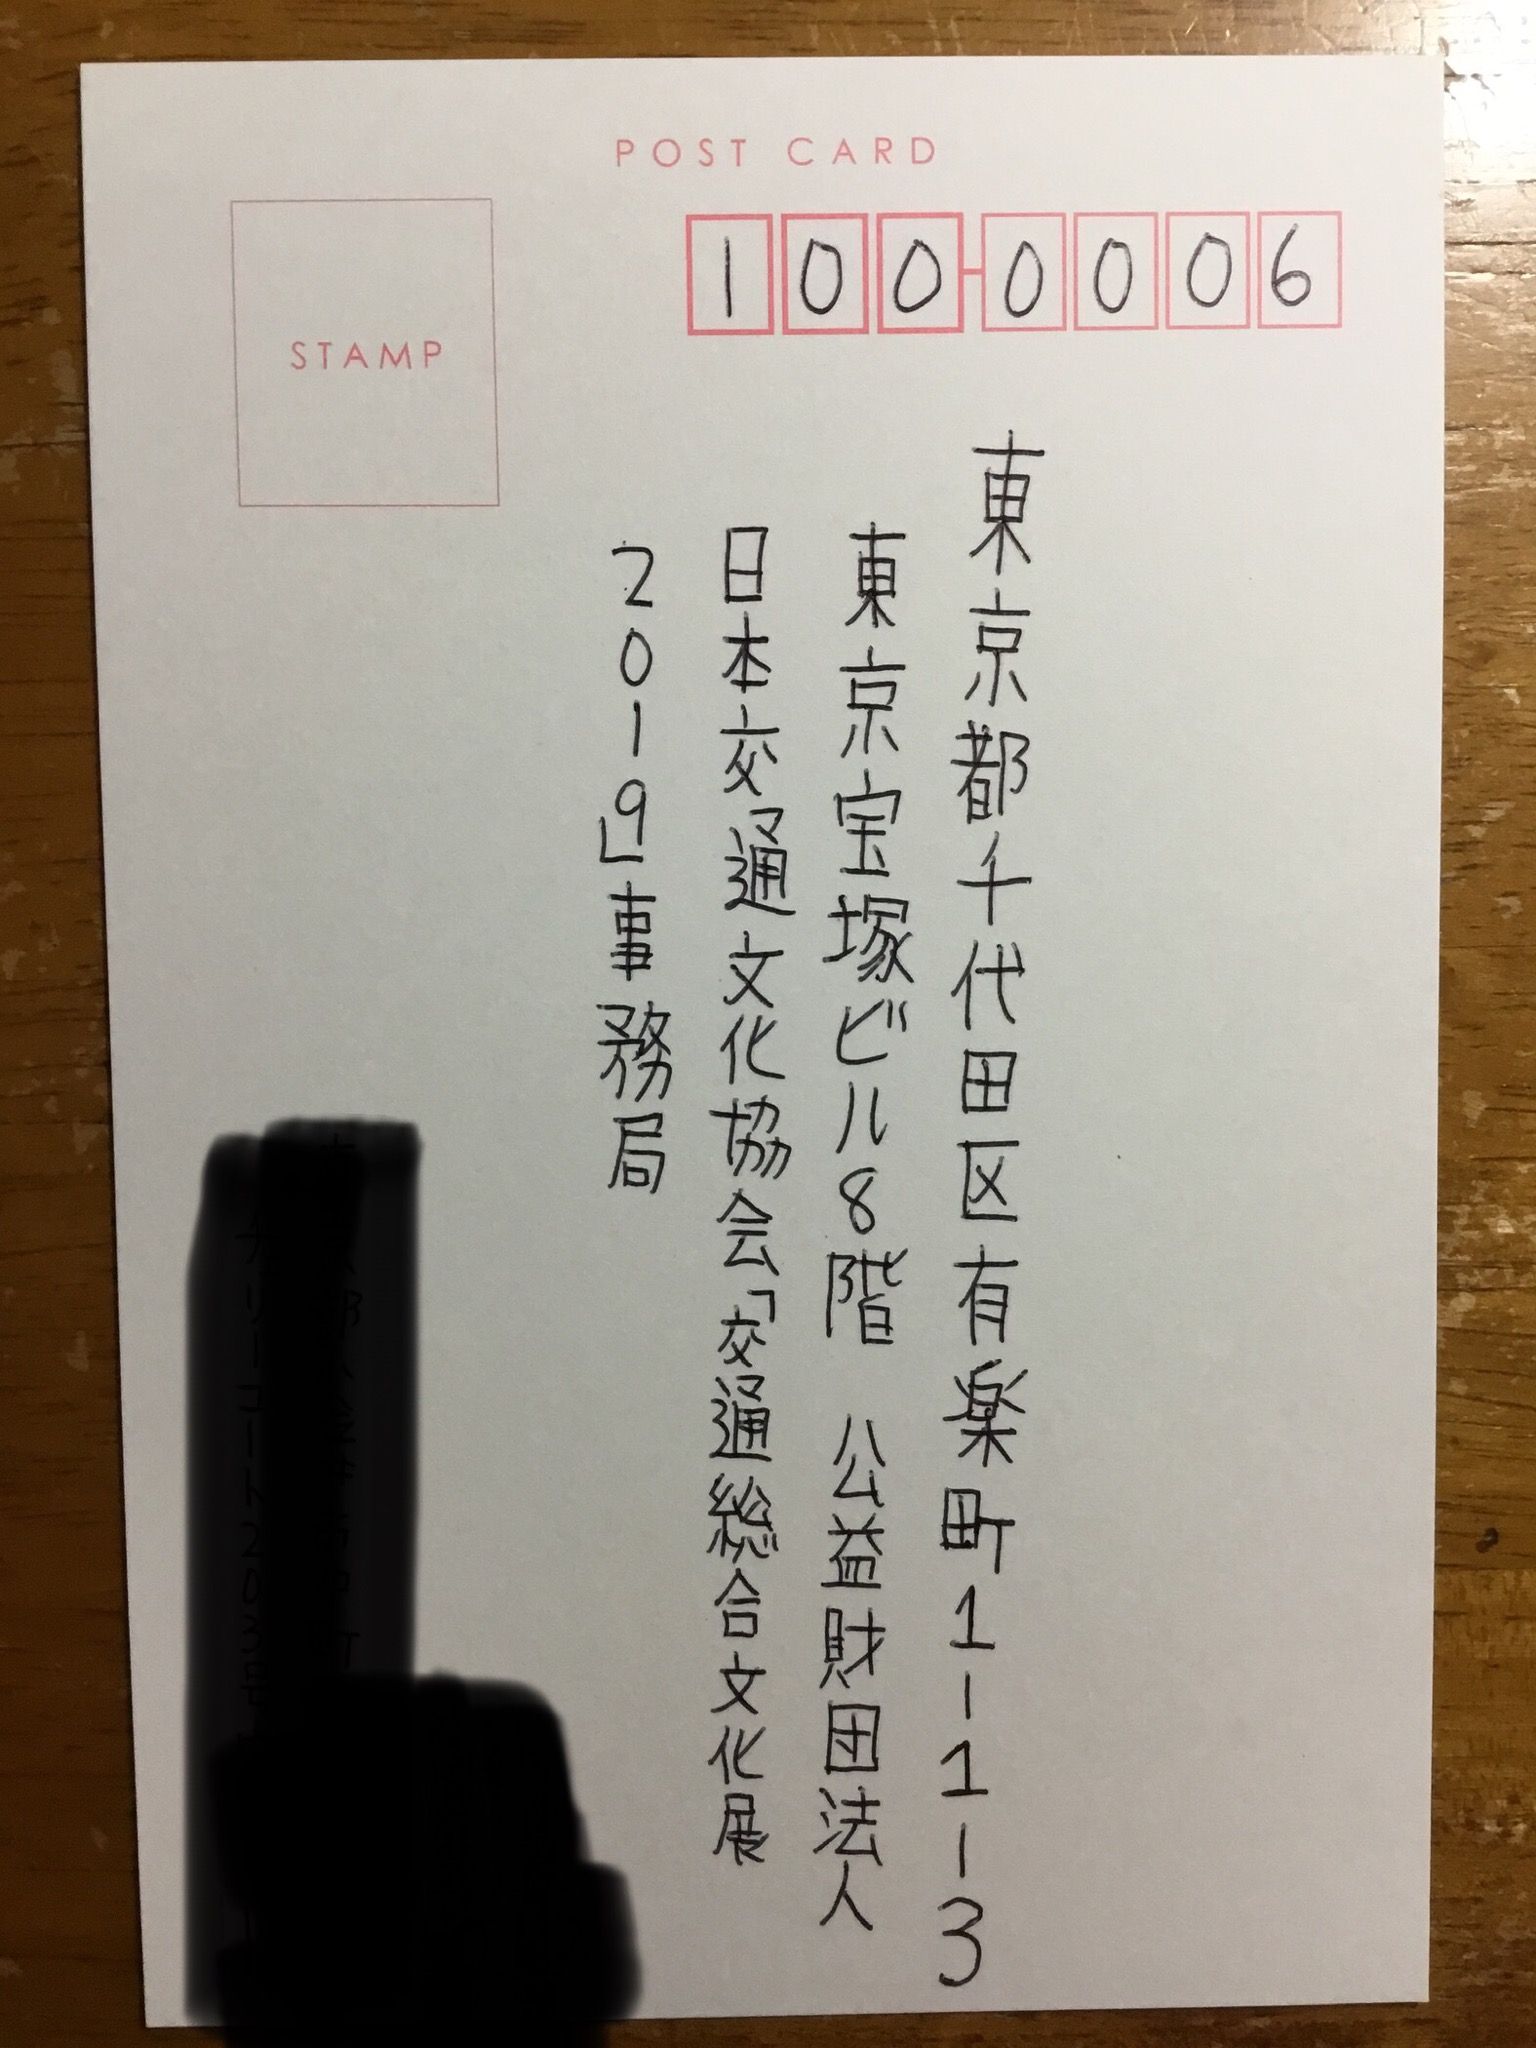 POST CARD
STAMP
100-0006
東京都千代田区有楽町1-1-3
東京宝塚ビル8階 公益財団法人
日本交通文化協会「交通総合文化展
2019」事務局